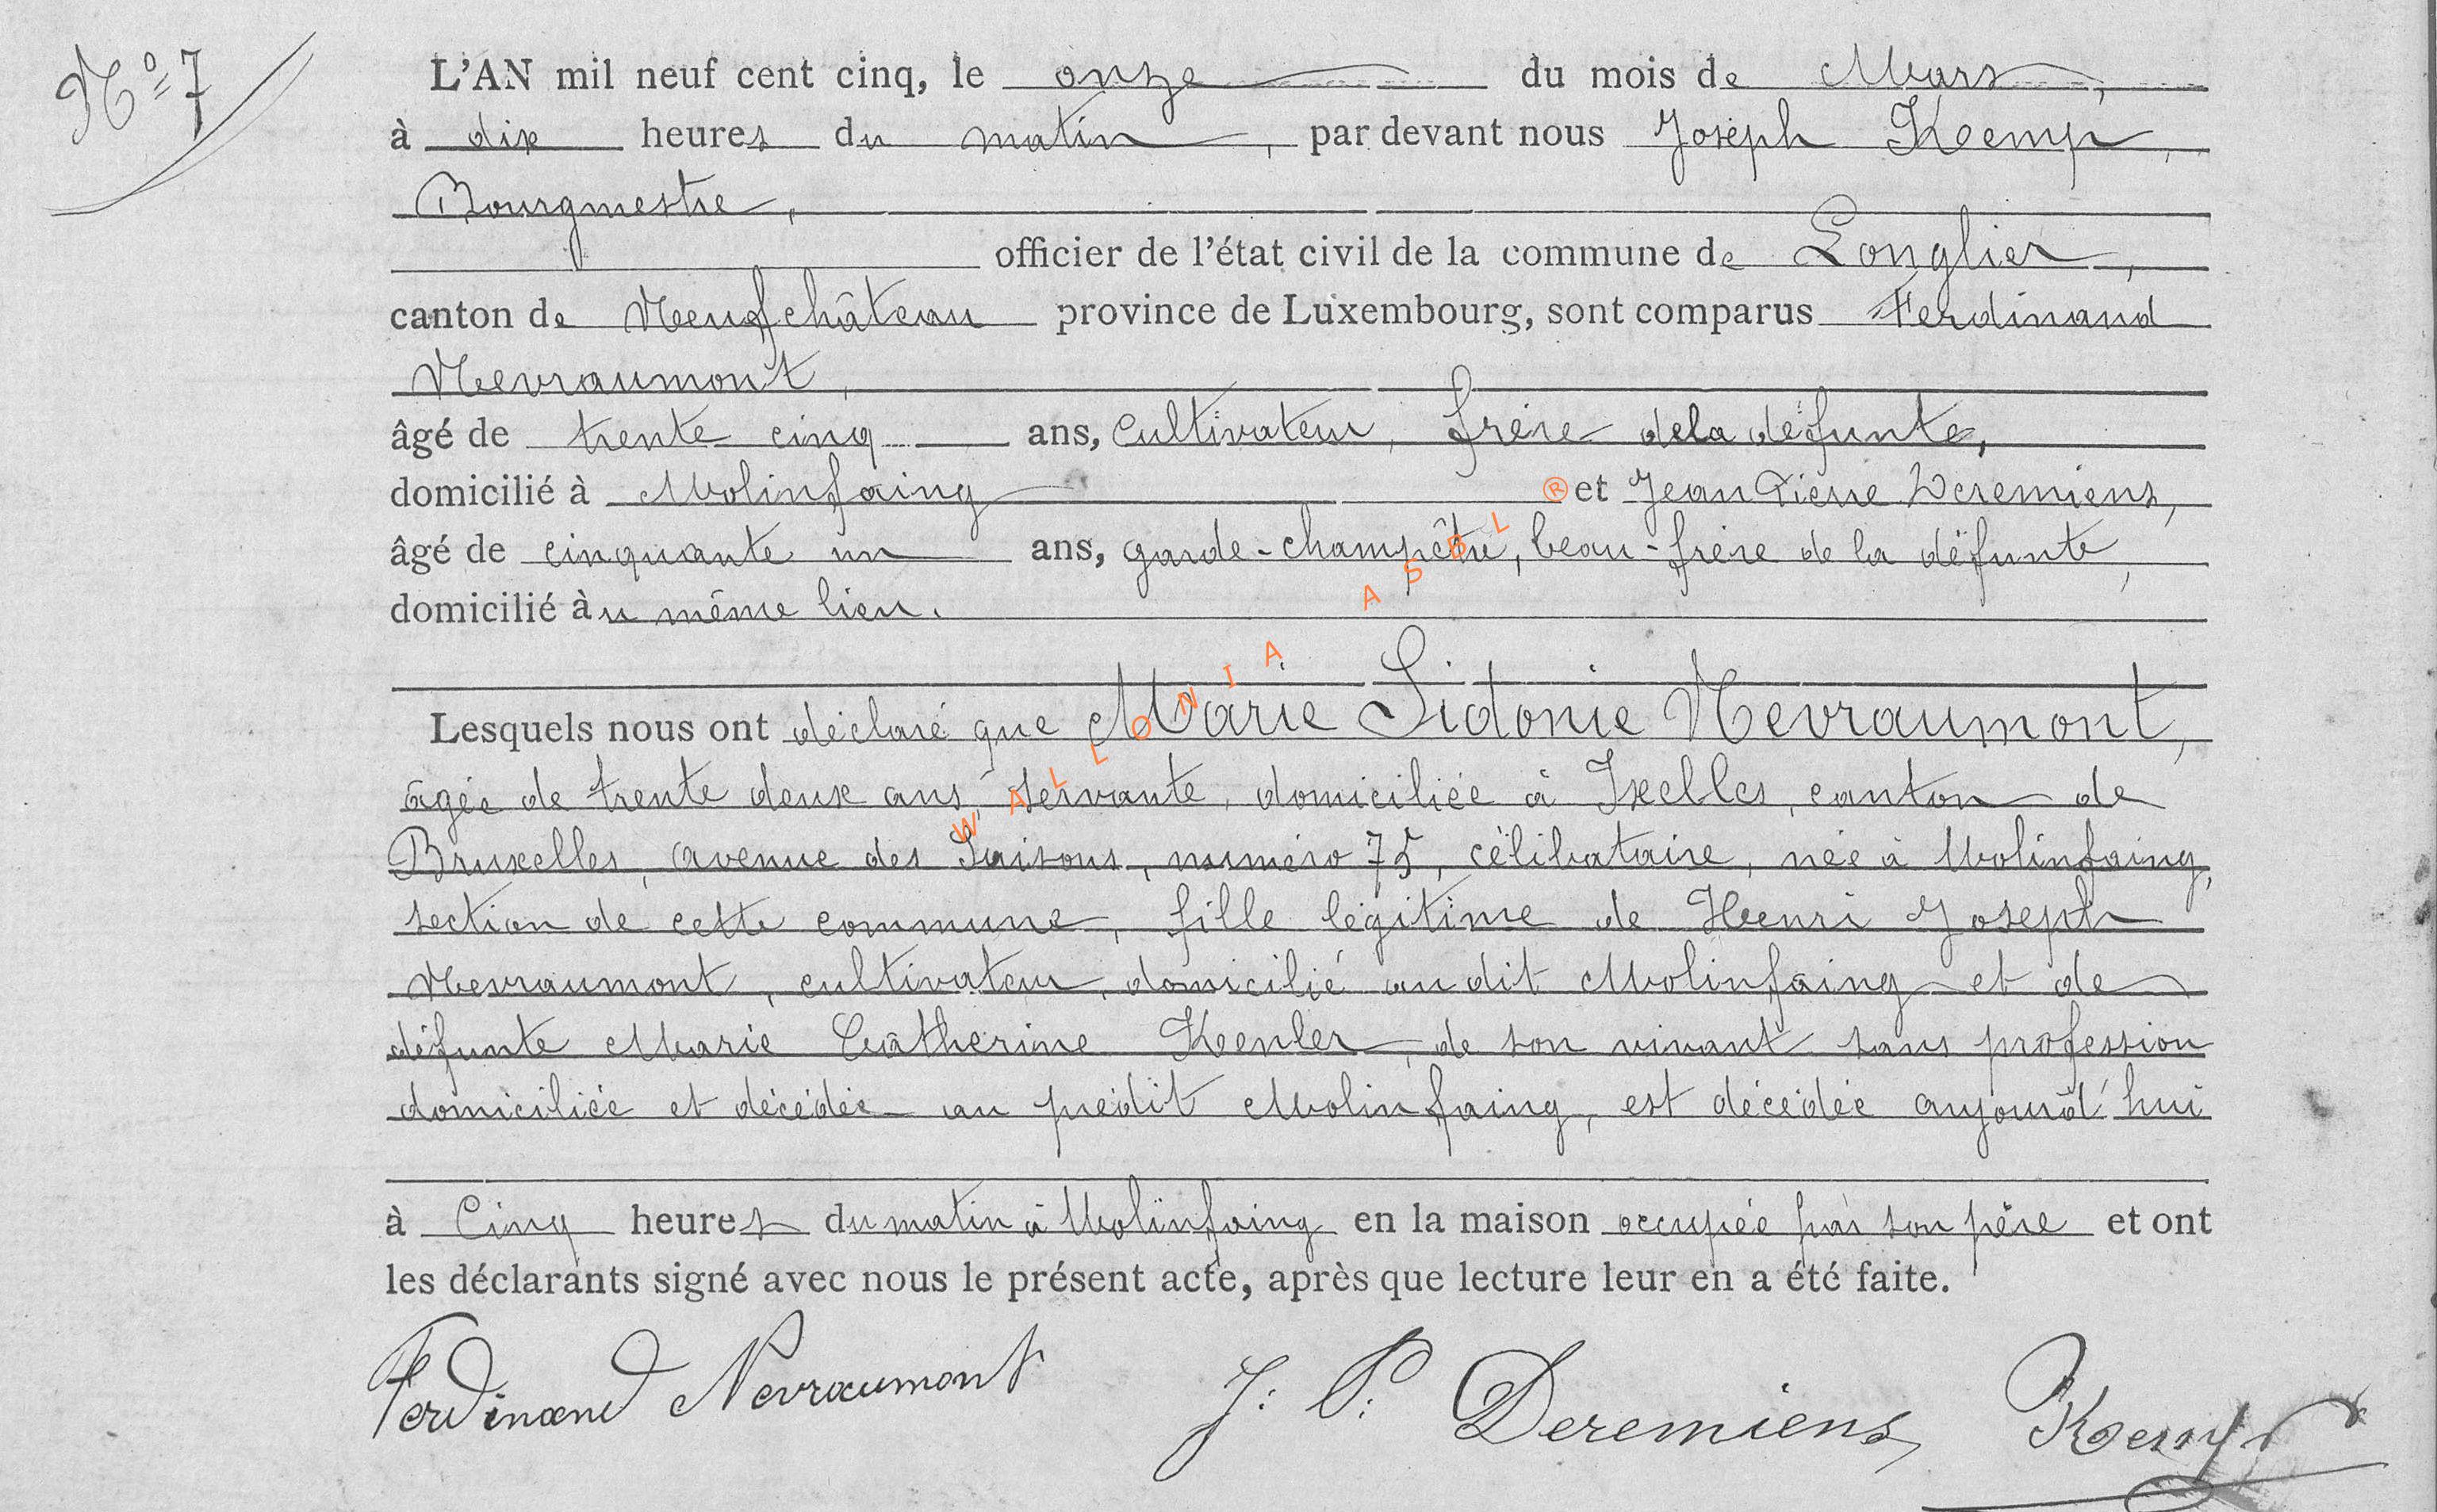 Nº 7
L'AN mil neuf cent cinq, le onze du mois de Mars,
à dix heures du matin, par devant nous Joseph Kemp,
Bourgmestre,
officier de l'état civil de la commune de Longlier,
canton de Neufchâteau province de Luxembourg, sont comparus Ferdinand
Nevraumont,
âgé de trente cinq ans, cultivateur, frère de la défunte,
domicilié à Molinfaing ® et Jean Pierre Deremiens,
âgé de cinquante un ans, garde-champêtre, beau-frère de la défunte,
domicilié au même lieu.
WALLONIA ASBL
Lesquels nous ont déclaré que Marie Sidonie Nevraumont,
âgée de trente deux ans, servante, domiciliée à Ixelles, canton de
Bruxelles, avenue des Saisons, numéro 75, célibataire, née à Molinfaing,
section de cette commune, fille légitime de Henri Joseph
Nevraumont, cultivateur, domicilié au dit Molinfaing et de
défunte Marie Catherine, de son vivant sans profession
domiciliée et décédée au prédit Molinfaing, est décédée aujourd'hui
à Cinq heures du matin à Molinfaing en la maison occupée par son père et ont
les déclarants signé avec nous le présent acte, après que lecture leur en a été faite.
Ferdinand Nevraumont J: P: Deremiens Kemp